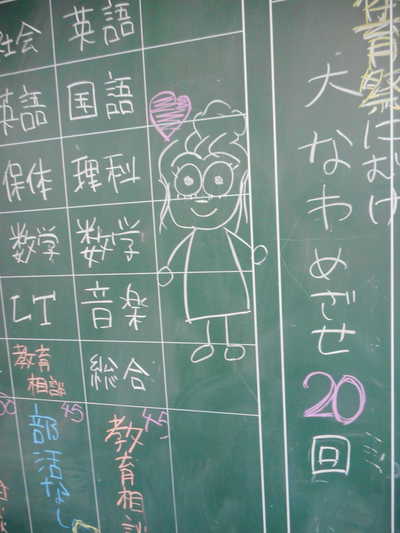 体育祭にむけ
大なわ めざせ 20回
英語
国語
理科
数学
音楽
総合
45
教育相談
社会
英語
保体
数学
LT
教育
相談
45
部活なし